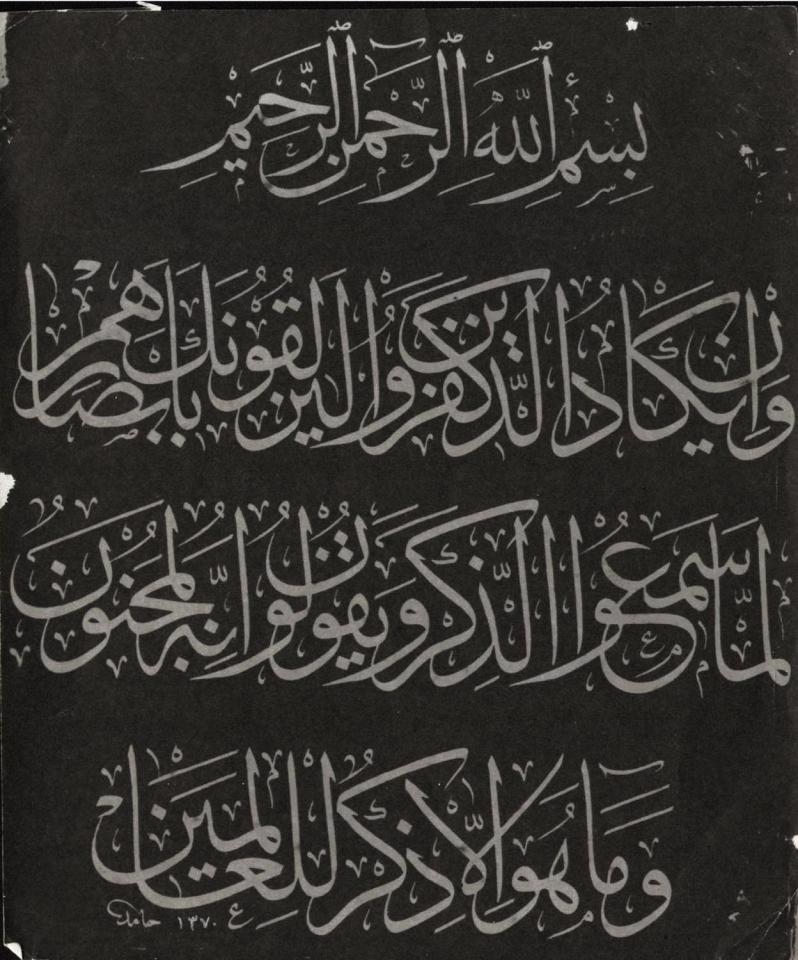 بِسْمِ اللّٰهِ الرَّحْمٰنِ الرَّحِيمِ
وَاِنْ يَكَادُ الَّذِينَ كَفَرُوا لَيُزْلِقُونَكَ بِاَبْصَارِهِمْ
لَمَّا سَمِعُوا الذِّكْرَ وَيَقُولُونَ اِنَّهُ لَمَجْنُونٌ
وَمَا هُوَ اِلَّا ذِكْرٌ لِلْعَالَمِينَ
ع ١٣٧٠ حامد